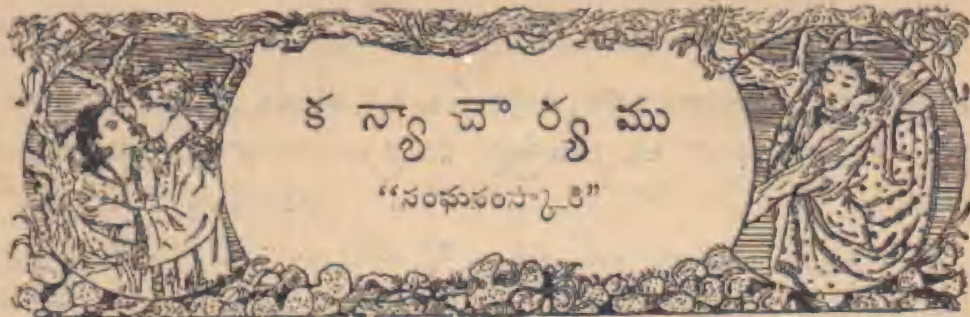 కన్యాచౌర్యము
“సంఘసంస్కారి”